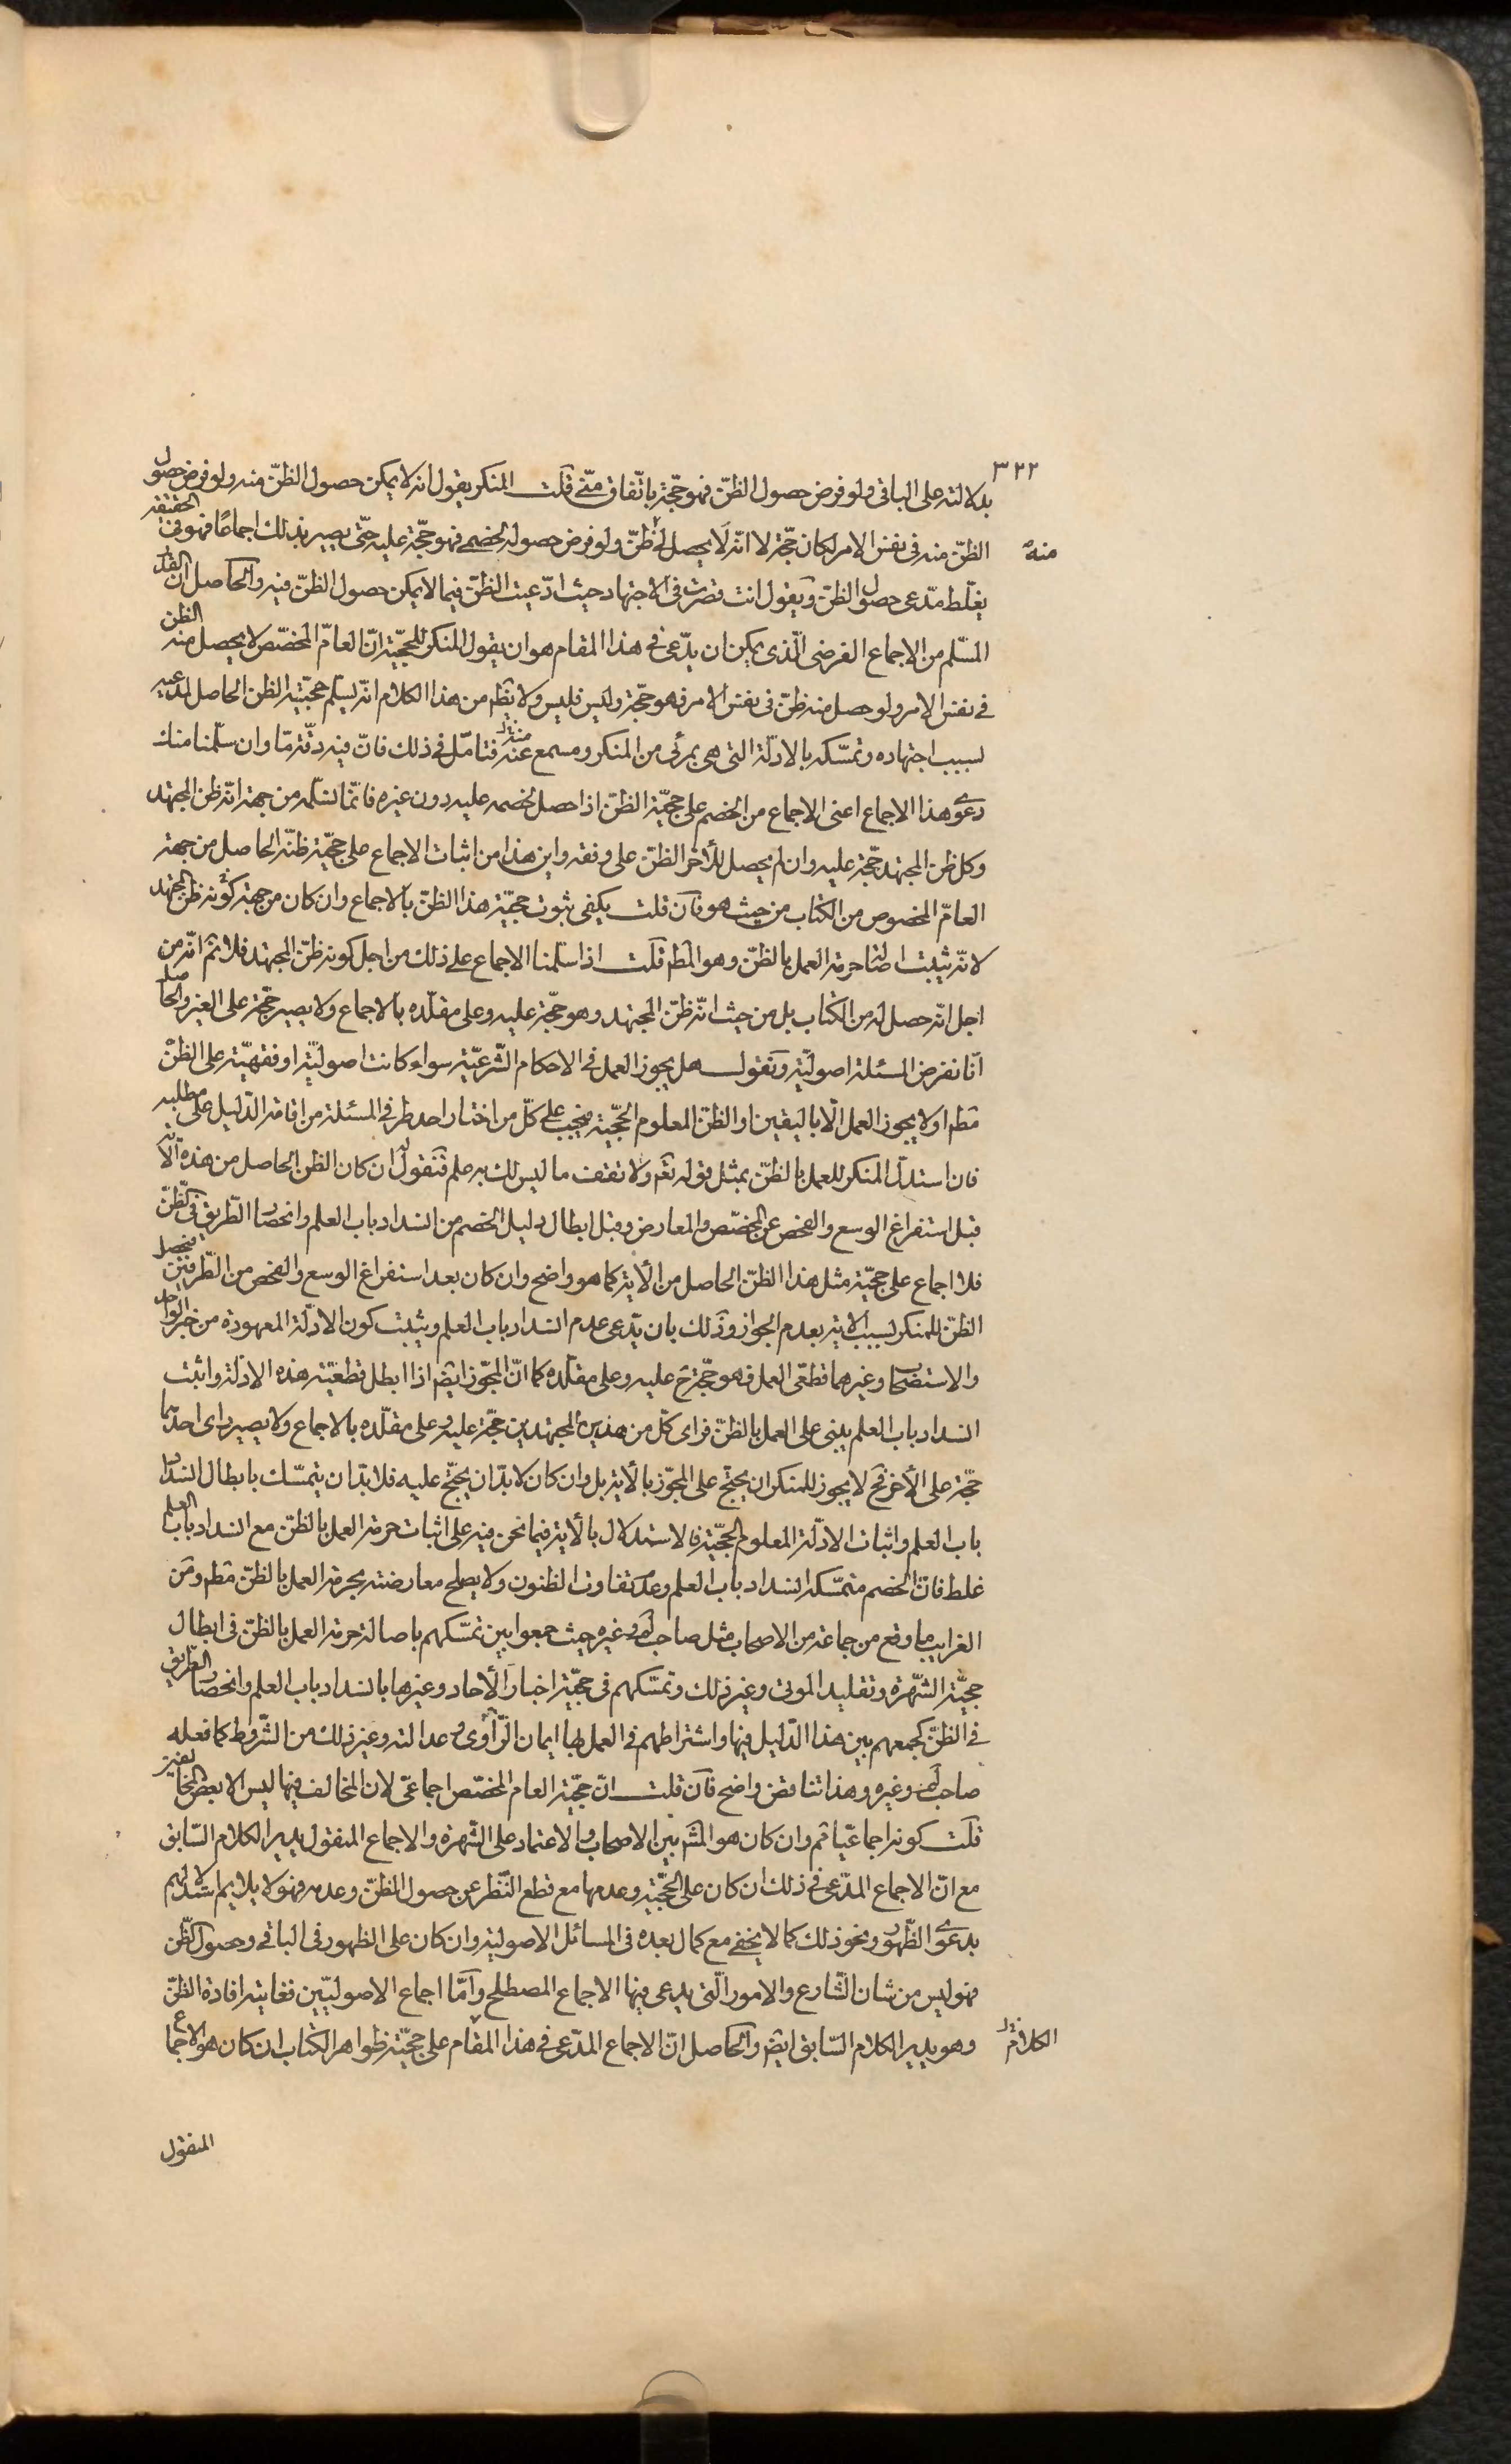 ٣٢٢
بدلالته على الباقى ولو فرض حصول الظنّ فهو حجّة باتّفاق منّى قلت المنكر يقول انه لا يمكن حصول الظنّ منه ولو فرض حصول
الظنّ منه فى نفس الامر لكان حجّة لا انّه لا يحصل لى ظنّ ولو فرض حصوله لخصمى فهو حجّة عليه حتّى يصير بذلك اجماعًا فهو فى الحقيقة
منه
يغلّط مدّعى حصول الظنّ ويقول انت قصرت فى الاجتهاد حيث ادّعيت الظنّ فيما لا يمكن حصول الظنّ فيه والحاصل ان القدر
المسّلم من الاجماع الفرضى الّذى يمكن ان يدّعى فى هذا المقام هو ان يقول المنكر للحجّية انّ العامّ المخصّص لا يحصل منه الظن
فى نفس الامر ولو حصل منه ظنّ فى نفس الامر فهو حجّة وليس فليس ولا يظهر من هذا الكلام انّه يسلّم حجّيّة الظن الحاصل لمدعيه
بسبب اجتهاده وتمسّكه بالادلّة التى هى بمرئى من المنكر ومسمع منه فتامّل فى ذلك فانّ فيه دقّة مّا وان سلّمنا منك
دعوى هذا الاجماع اعنى الاجماع من الخصم على حجيّة الظنّ اذا حصل لخصمه عليه دون غيره فانّما نسلّمه من جهة انّه ظن المجتهد
وكل ظن المجتهد حجّة عليه وان لم يحصل للآخر الظنّ على وفقه واين هذا من اثبات الاجماع على حجّيّة ظنّه الحاصل من جهة
العامّ المخصوص من الكتاب من حيث هو فان قلت يكفى ثبوت حجيّة هذا الظنّ بالاجماع وان كان من جهة كونه ظن المجتهد
لانّه يثبت اصالتنا حرمة العمل بالظنّ وهو المط قلت اذا سلّمنا الاجماع على ذلك من اجل كونه ظنّ المجتهد فلا ثم انّه من
اجل انّه حصل له من الكتاب بل من حيث انّه ظنّ المجتهد وهو حجّة عليه وعلى مقلّده بالاجماع ولا يصير حجّة على الغير والحاصل
انّا نفرض المسئلة اصوليّة ونقول هل يجوز العمل فى الاحكام الشّرعيّة سواء كانت اصوليّة او فقهيّة على الظنّ
مط او لا يجوز العمل الّا باليقين او الظنّ المعلوم الحجّيّة فيجب على كلّ من اختار احد طرفى المسئلة من اقامة الدّليل على مطلبه
فان استدلّ المنكر للعمل بالظنّ بمثل قوله تعم ولا تقف ما ليس لك به علم فنقول له ان كان الظن الحاصل من هذه الآية
قبل استفراغ الوسع والفحص عن المخصّص والمعارض وقبل ابطال دليل الخصم من انسداد باب العلم وانحصار الطّريق فى الظّنّ
فلا اجماع على حجّيّة مثل هذا الظنّ الحاصل من الآية كما هو واضح وان كان بعد استفراغ الوسع والفحص من الطّرفين فيحصل
الظنّ للمنكر بسبب الآية بعدم الجواز وذلك بان يدّعى عدم انسداد باب العلم ويثبت كون الادلّة المعهودة من خبر الواحد
والاستصحاب وغيرهما قطعّى العمل فهو حجّة ح عليه وعلى مقلّده كما انّ المجّوز ايضم اذا ابطل قطعيّة هذه الادلّة واثبت
انسداد باب العلم يبنى على العمل بالظنّ فراى كلّ من هذين المجتهدين حجّة عليه وعلى مقلّده بالاجماع ولا يصير راى احدهما
حجّة على الآخر فح لا يجوز للمنكر ان يحتجّ على المجّوز بالآية بل وان كان لا بدّ ان يحتجّ عليه فلا بدّ ان يتمسّك بابطال انسداد
باب العلم واثبات الادلّة المعلوم الحجّيّة فالاستدلال بالآية فيما نحن فيه على اثبات حرمة العمل بالظنّ مع انسداد باب العلم
غلط فانّ الخصم متمسّكه انسداد باب العلم وعدم تفاوت الظنون ولا يصلح معارضته بحرمة العمل بالظنّ مط ومن
الغرايب ما وقع من جماعة من الاصحاب مثل صاحب لم وغيره حيث جمعوا بين تمسّكهم باصالة حرمة العمل بالظنّ فى ابطال
حجيّة الشّهرة وتقليد الموتى وغير ذلك وتمسّكهم فى حجيّة اخبار الآحاد وغيرها بانسداد باب العلم وانحصار الطّريق
فى الظنّ كجمعهم بين هذا الدّليل فيها واشتراطهم فى العمل بها ايمان الرّاوى وعدالته وغير ذلك من الشّروط كما فعله
صاحب لم وغيره وهذا تناقض واضح فان قلت انّ حجيّة العام المخصّص اجماعّى لان المخالف فيها ليس الا بعض المخالفين
قلت كونه اجماعيّا ثم وان كان هو المشه بين الاصحاب والاعتماد على الشّهرة والاجماع المنقول يدير الكلام السّابق
مع انّ الاجماع المدّعى فى ذلك ان كان على الحجّيّة وعدمها مع قطع النّظر عن حصول الظنّ وعدمه فهو لا يلايم استدلالهم
بدعوى الظّهور ونحو ذلك كما لا يخفى مع كمال بعده فى المسائل الاصولية وان كان على الظهور فى الباقى وحصول الظّن
فهو ليس من شان الشّارع والامور الّتى يدعى فيها الاجماع المصطلح وامّا اجماع الاصوليّين فغايته افادة الظنّ
وهو يدير الكلام السّابق ايضم والحاصل انّ الاجماع المدّعى فى هذا المقام على حجيّة ظواهر الكتاب ان كان هو الاجماع
الكلام
المنقول